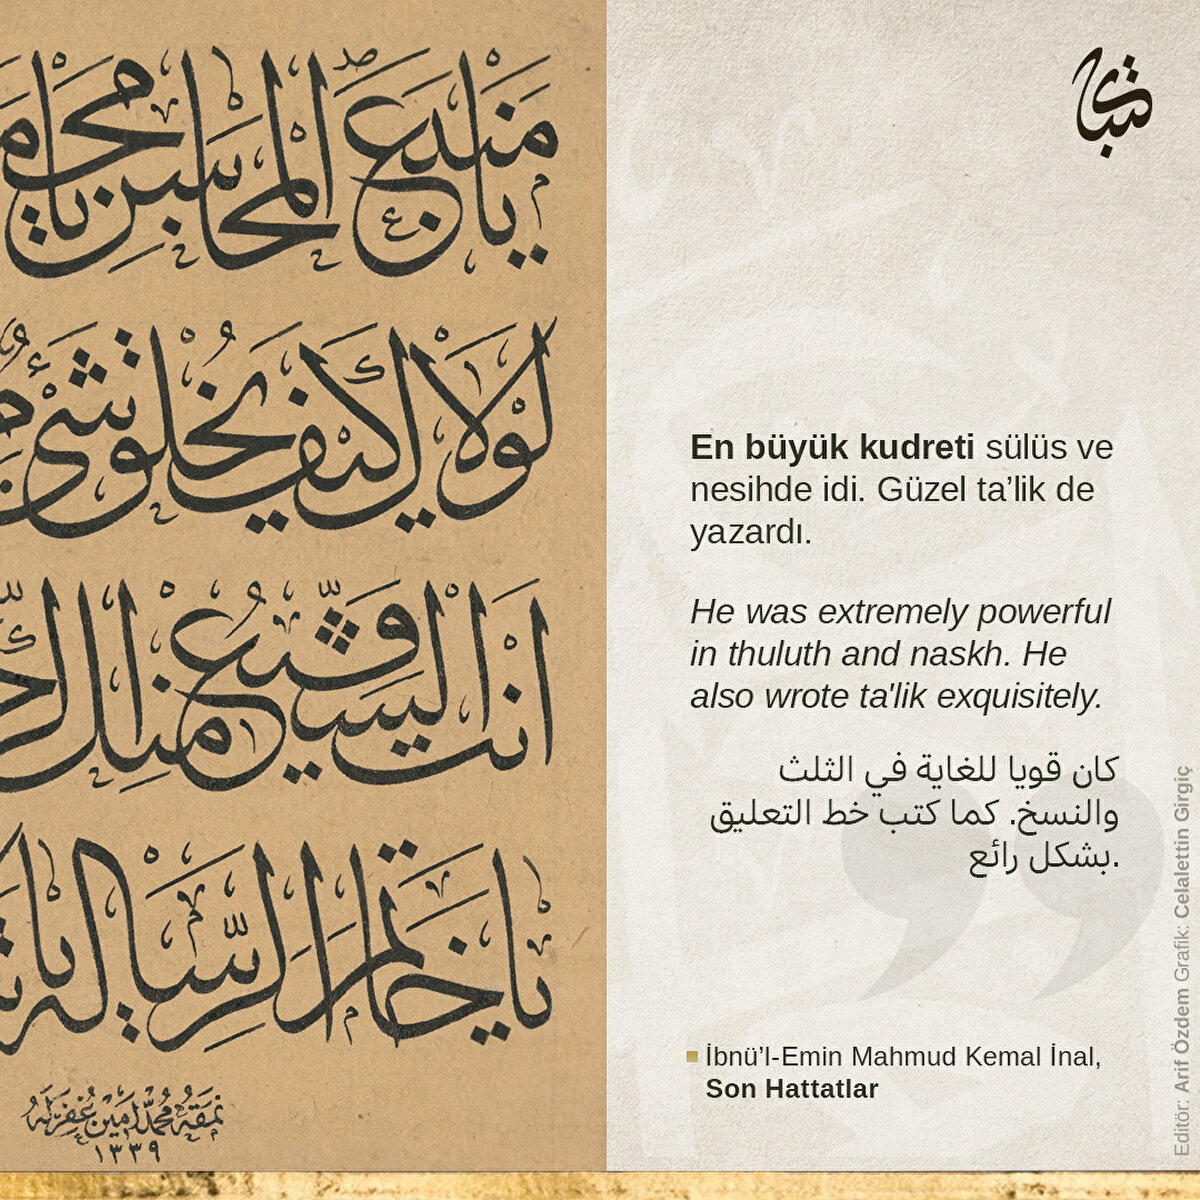 يا منبع المحاسن يا
لولاك كيف يخلق شئ
انت
يا خاتم الرسالة يا
نمقه محمد امين غفر له
١٣٣٩
En büyük kudreti sülüs ve
nesihde idi. Güzel ta’lik de
yazardı.
He was extremely powerful
in thuluth and naskh. He
also wrote ta'lik exquisitely.
كان قويا للغاية في الثلث
والنسخ. كما كتب خط التعليق
بشكل رائع.
İbnü’l-Emin Mahmud Kemal İnal,
Son Hattatlar
Editör: Arif Özdem Grafik: Celalettin Girgiç